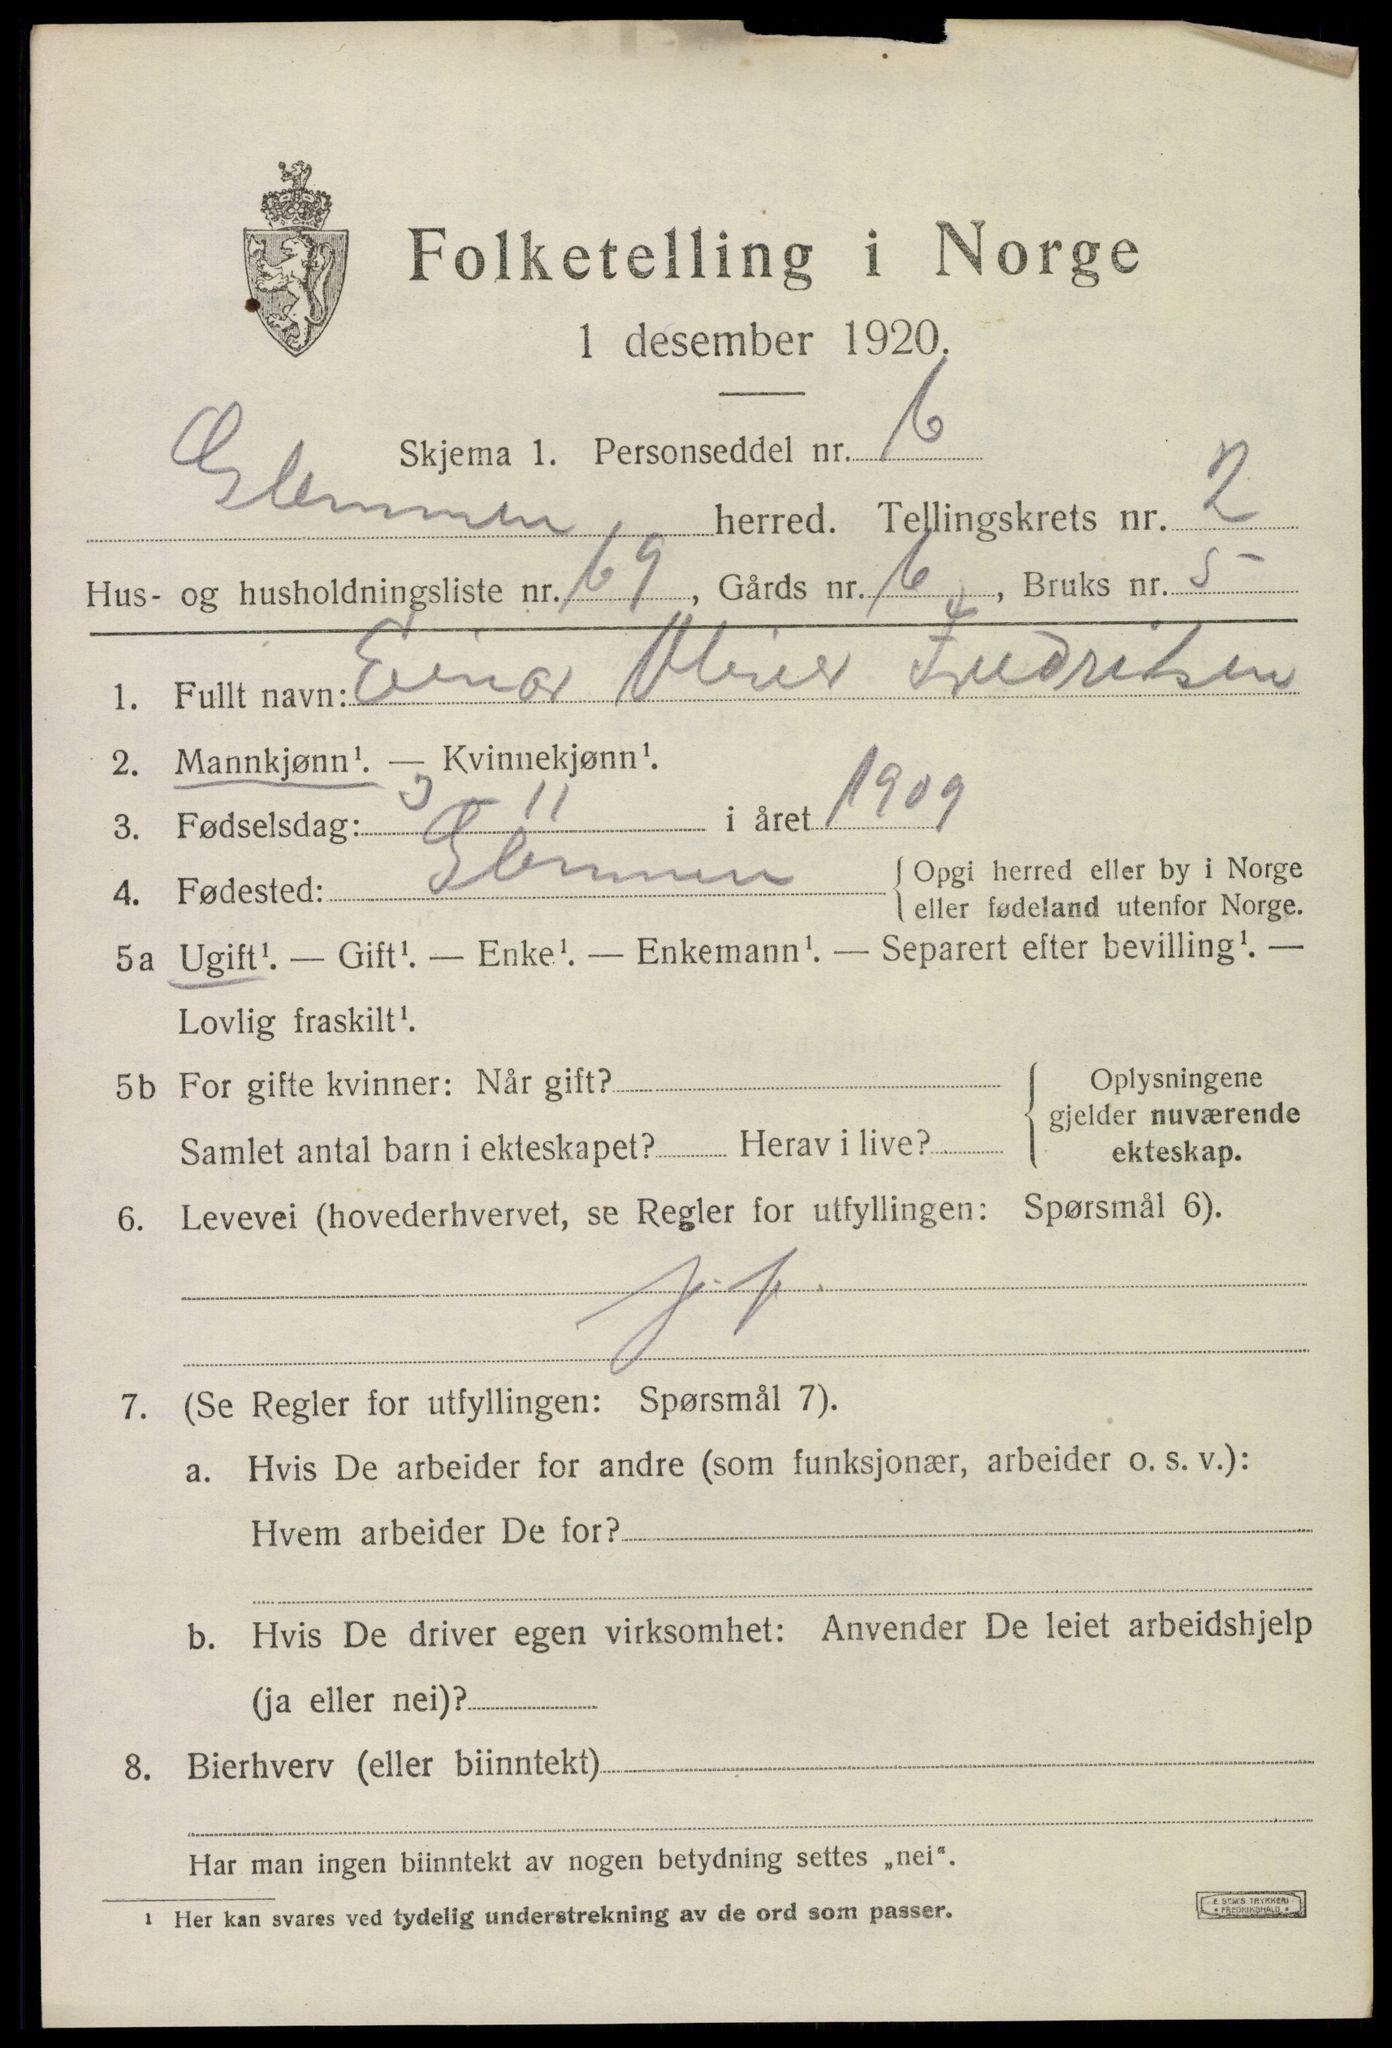 Folketelling i Norge
1 desember 1920.
Skjema 1. Personseddel nr. 6
Glemmen herred. Tellingskrets nr. 2
Hus- og husholdningsliste nr. 69, Gårds nr. 6, Bruks nr. 5
1. Fullt navn: Einar Fredriksen
2. Mannkjønn¹. — Kvinnekjønn¹.
3. Fødselsdag: 3 - 11 i året 1909
4. Fødested: Glemmen { Opgi herred eller by i Norge
eller fødeland utenfor Norge.
5a Ugift¹. — Gift¹. — Enke¹. — Enkemann¹. — Separert efter bevilling¹. —
Lovlig fraskilt¹.
5b For gifte kvinner: Når gift? { Oplysningene
gjelder nuværende
Samlet antal barn i ekteskapet? Herav i live? ekteskap.
6. Levevei (hovederhvervet, se Regler for utfyllingen: Spørsmål 6).
7. (Se Regler for utfyllingen: Spørsmål 7).
a. Hvis De arbeider for andre (som funksjonær, arbeider o. s. v.):
Hvem arbeider De for?
b. Hvis De driver egen virksomhet: Anvender De leiet arbeidshjelp
(ja eller nei)?
8. Bierhverv (eller biinntekt)
Har man ingen biinntekt av nogen betydning settes „nei“.
1 Her kan svares ved tydelig understrekning av de ord som passer.
E SEM'S TRYKKERI
FREDRIKSHALD